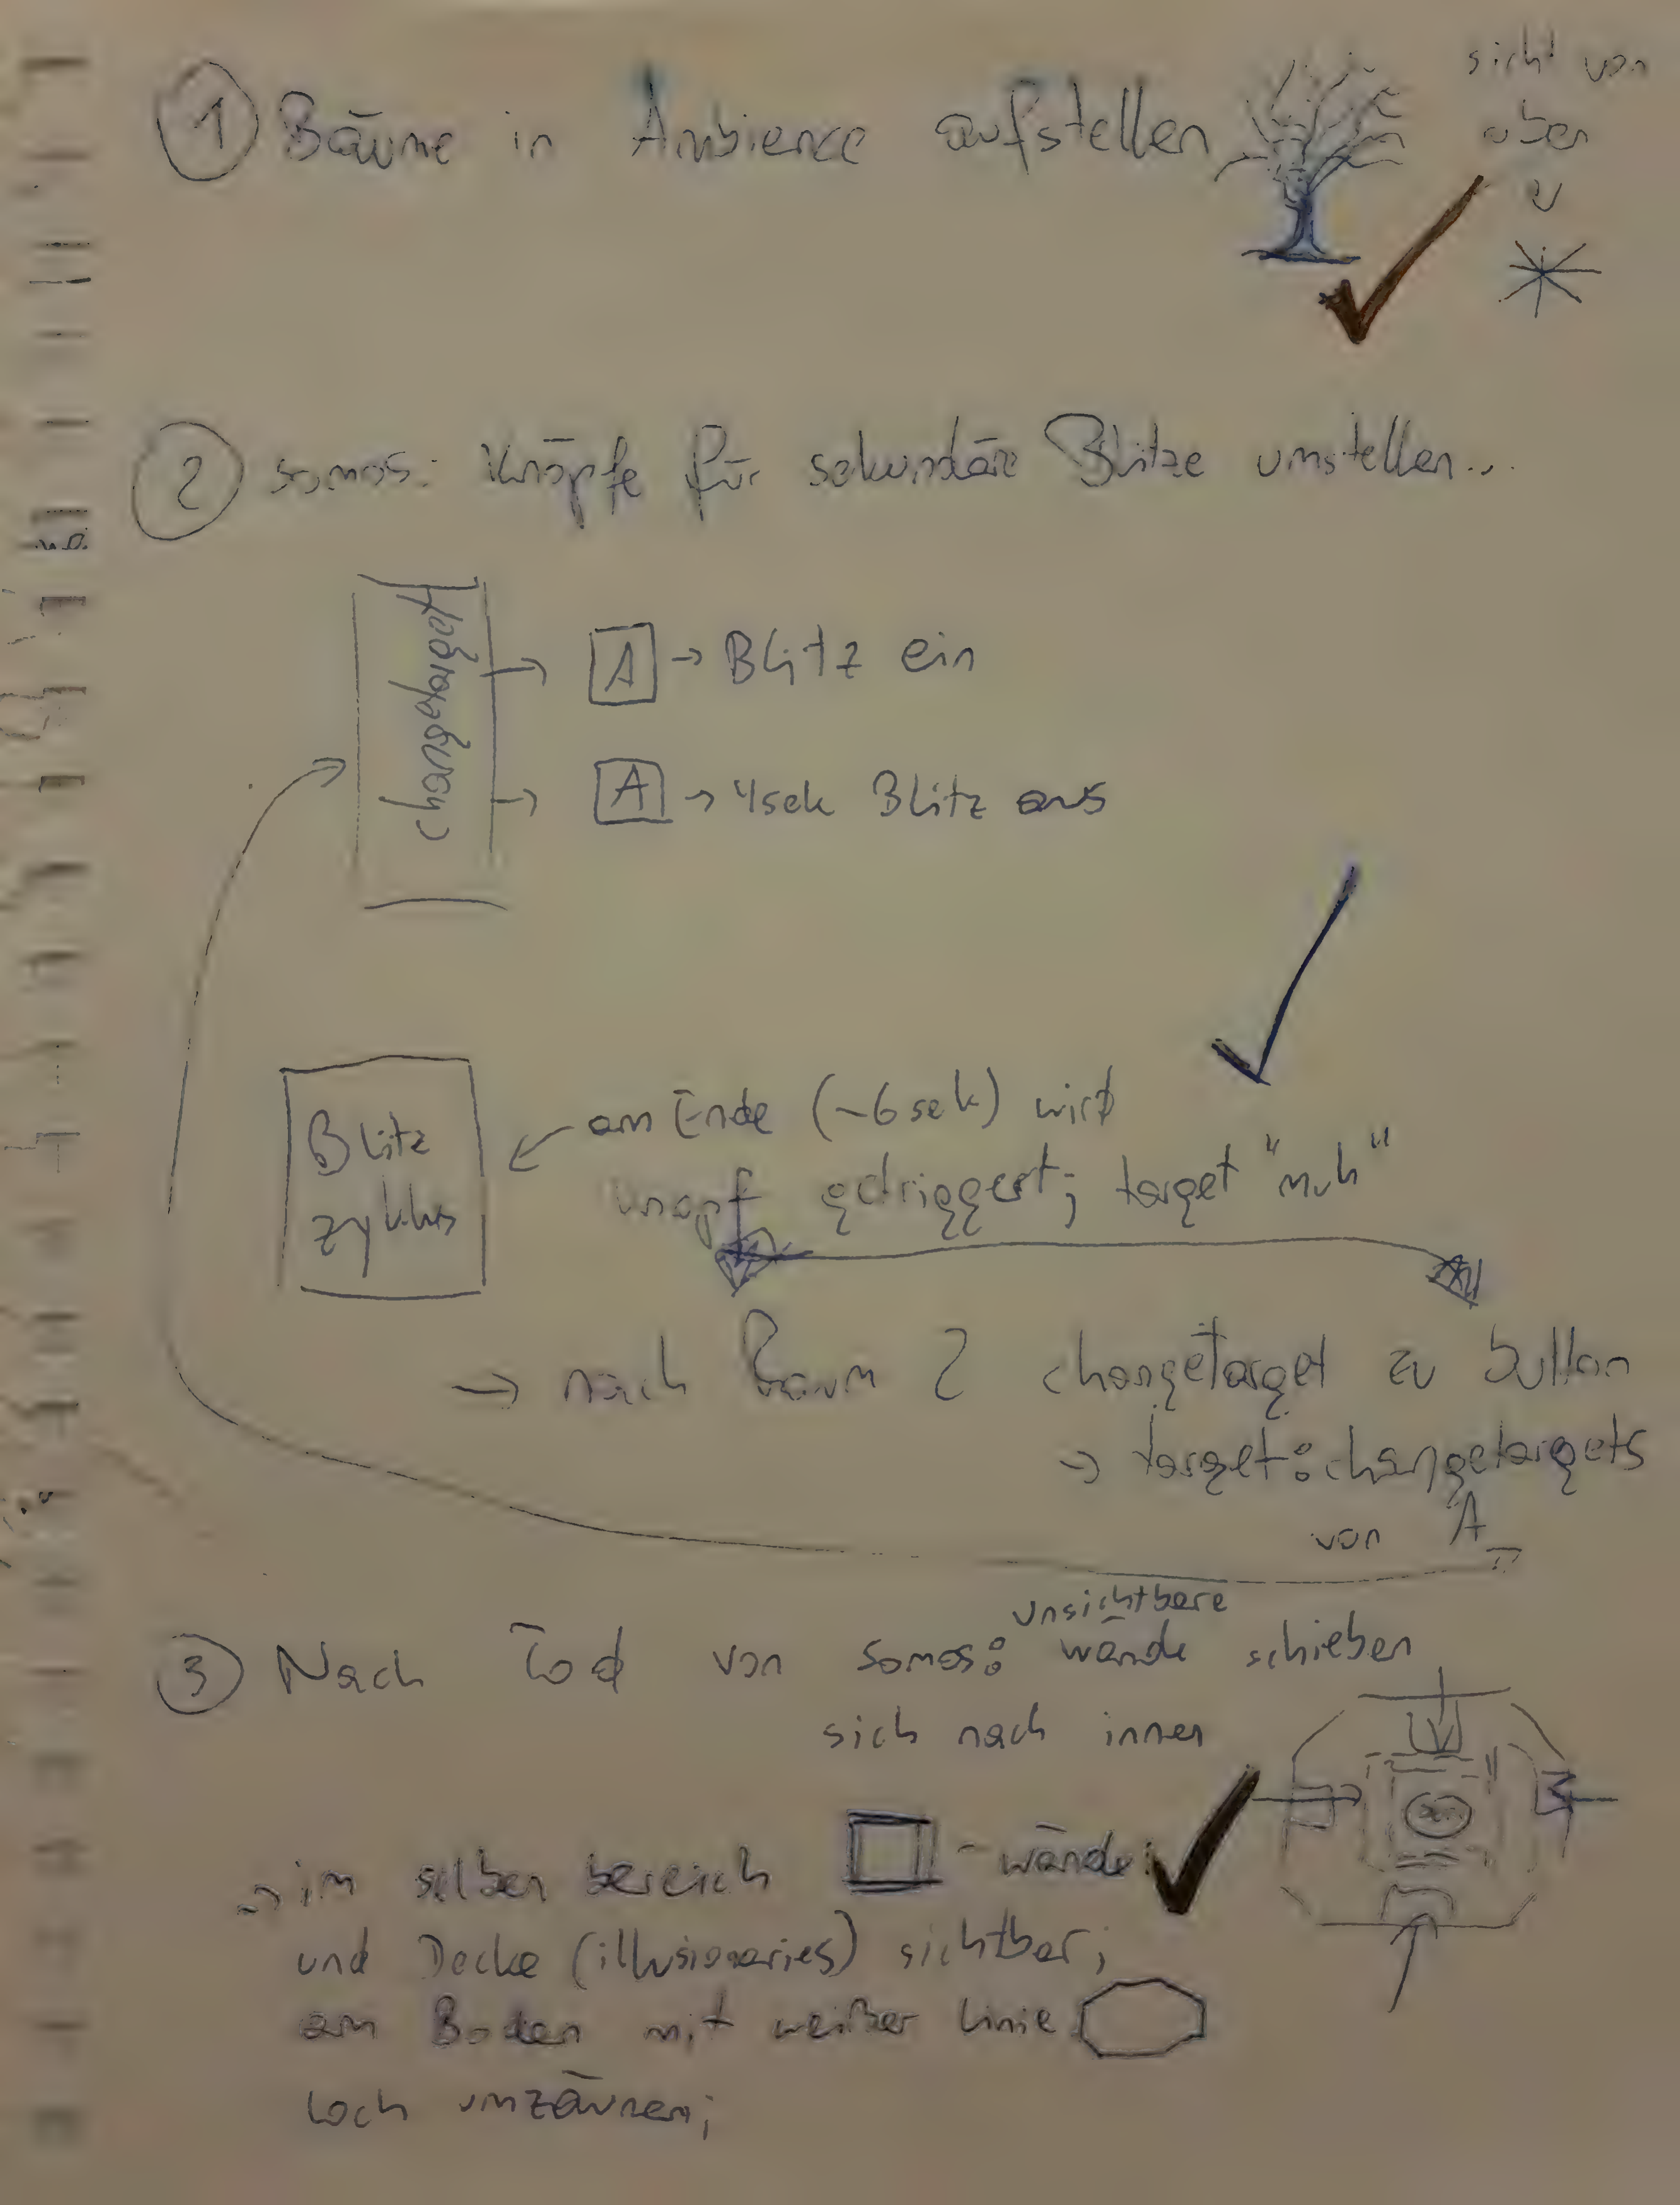 ① Bäume in Ambience aufstellen
sicht von
oben
② somos: Knöpfe für sekundäre Blitze umstellen...
changetarget
→ A → Blitz ein
→ A → 4sek Blitz aus
Blitz
zyklus
← am Ende (~6sek) wird
knopf getriggert; target "muh"
→ nach Raum 2 changetarget zu button
→ target: changetargets
von A
③ Nach Tod von somos: unsichtbere wände schieben
sich nach innen
→ im selben bereich - wände
und Decke (illusionaries) sichtbar;
am Boden mit weißer Linie
loch umzäunen;